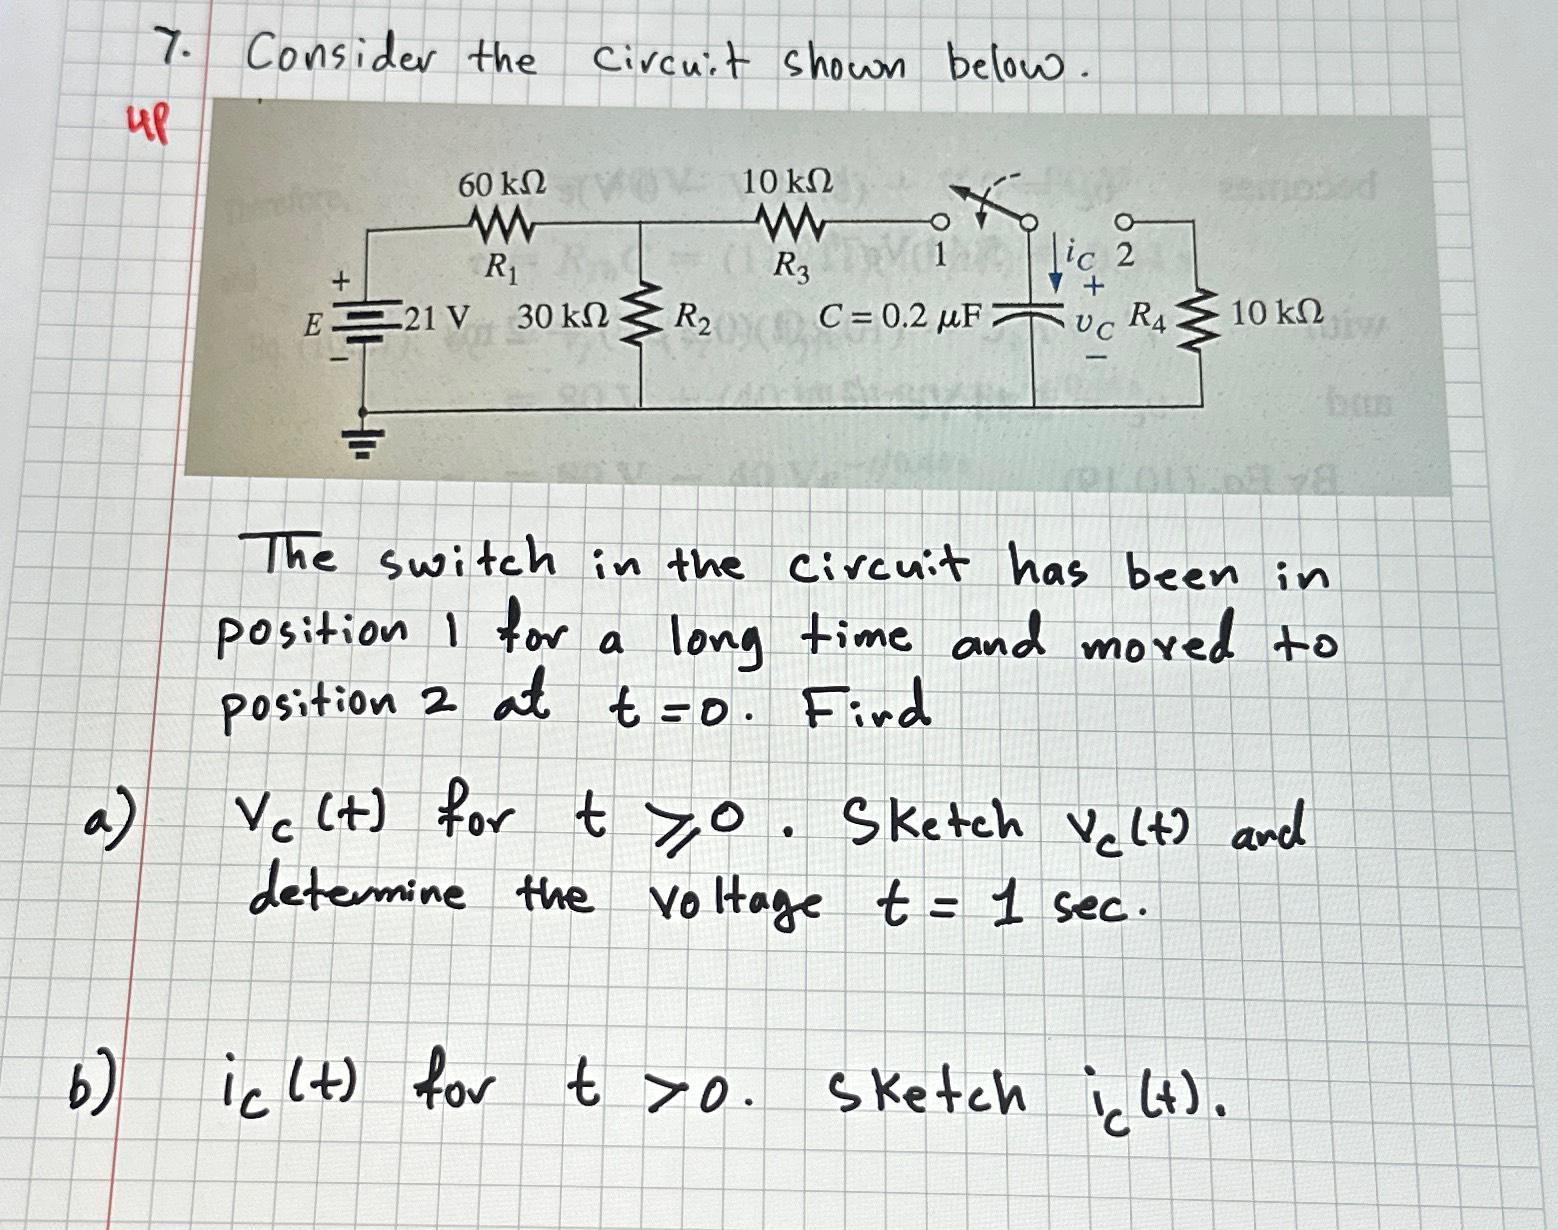 7. Consider the circuit shown below.
4P
60 kΩ 10 kΩ
R1 R3 1 iC 2
+ +
E 21 V 30 kΩ R2 C = 0.2 μF υC R4 10 kΩ
− −
The switch in the circuit has been in
position 1 for a long time and moved to
position 2 at t=0. Find
a) Vc(t) for t ⩾ 0. Sketch Vc(t) and
determine the voltage t = 1 sec.
b) ic(t) for t >0. sketch ic(t).